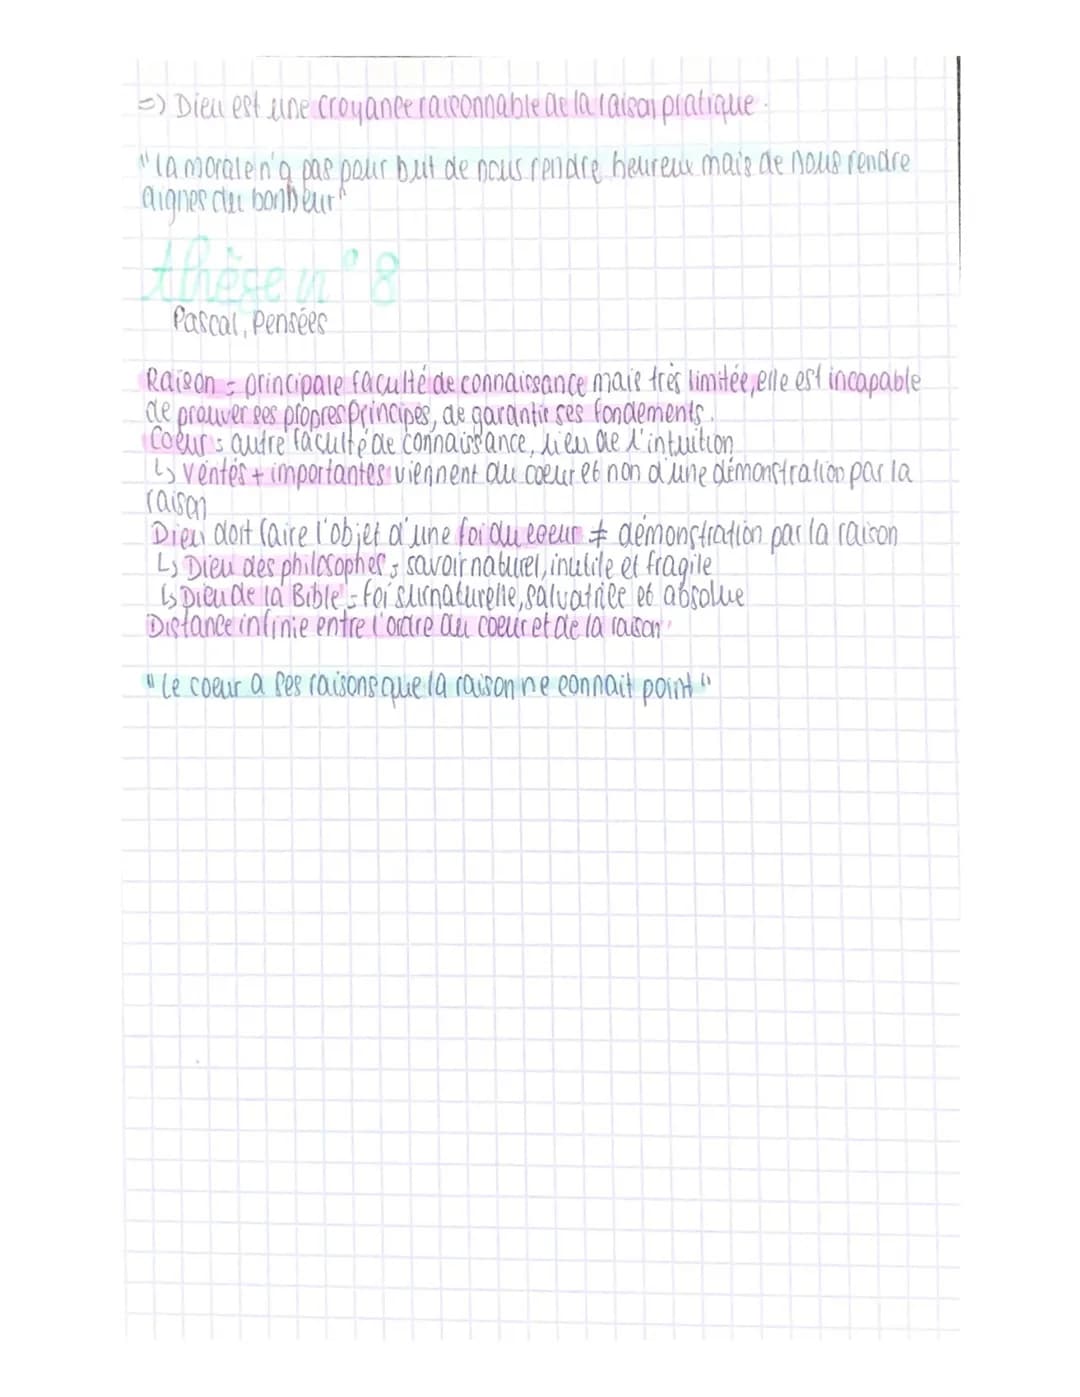 =) Dieu est une croyance raisonnable de la raison pratique.
"la morale n'a pas pour but de nous rendre heureux mais de nous rendre
dignes du bonheur"
thèse n°8
Pascal, Pensées
Raison = principale faculté de connaissance mais très limitée, elle est incapable
de prouver ses propres principes, de garantir ses fondements.
Coeur = autre faculté de connaissance, lieu de l'intuition
↳ vérités + importantes viennent du coeur et non d'une démonstration par la
raison
Dieu doit faire l'objet d'une foi du coeur ≠ démonstration par la raison
↳ Dieu des philosophes = savoir naturel, inutile et fragile
↳ Dieu de la Bible = foi surnaturelle, salvatrice et absolue
Distance infinie entre l'ordre du coeur et de la raison.
"Le coeur a ses raisons que la raison ne connait point"